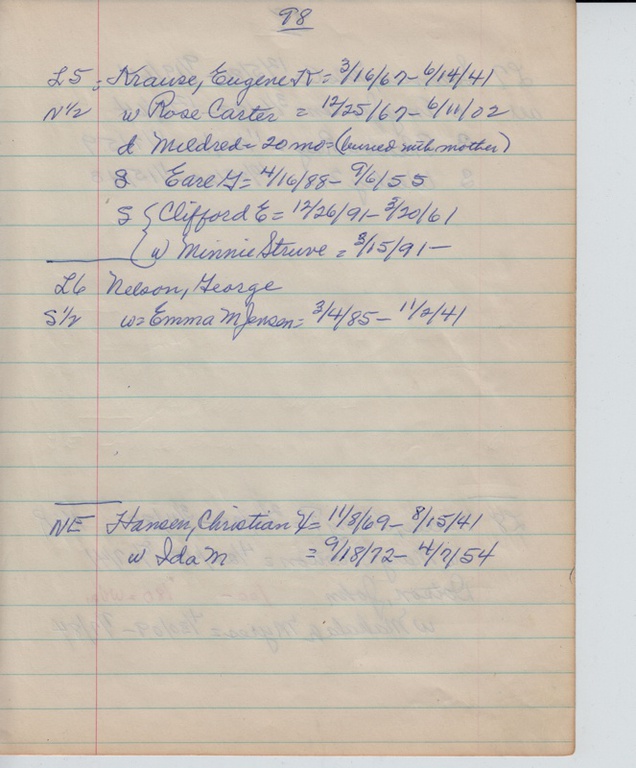 98
L5 = Krause, Eugene K = 3/16/67 - 6/14/41
N 1/2 w Rose Carter = 12/25/67 - 6/11/02
d Mildred = 20 mo = (buried with mother)
S Earl G = 4/16/88 - 9/6/55
S { Clifford E = 12/26/91 - 3/20/61
w Minnie Struve = 3/15/91 -
L6 Nelson, George
S 1/2 w = Emma M Jensen = 3/4/85 - 11/2/41
NE Hansen, Christian = 11/8/69 - 8/15/41
w Ida M = 9/18/72 - 4/7/54